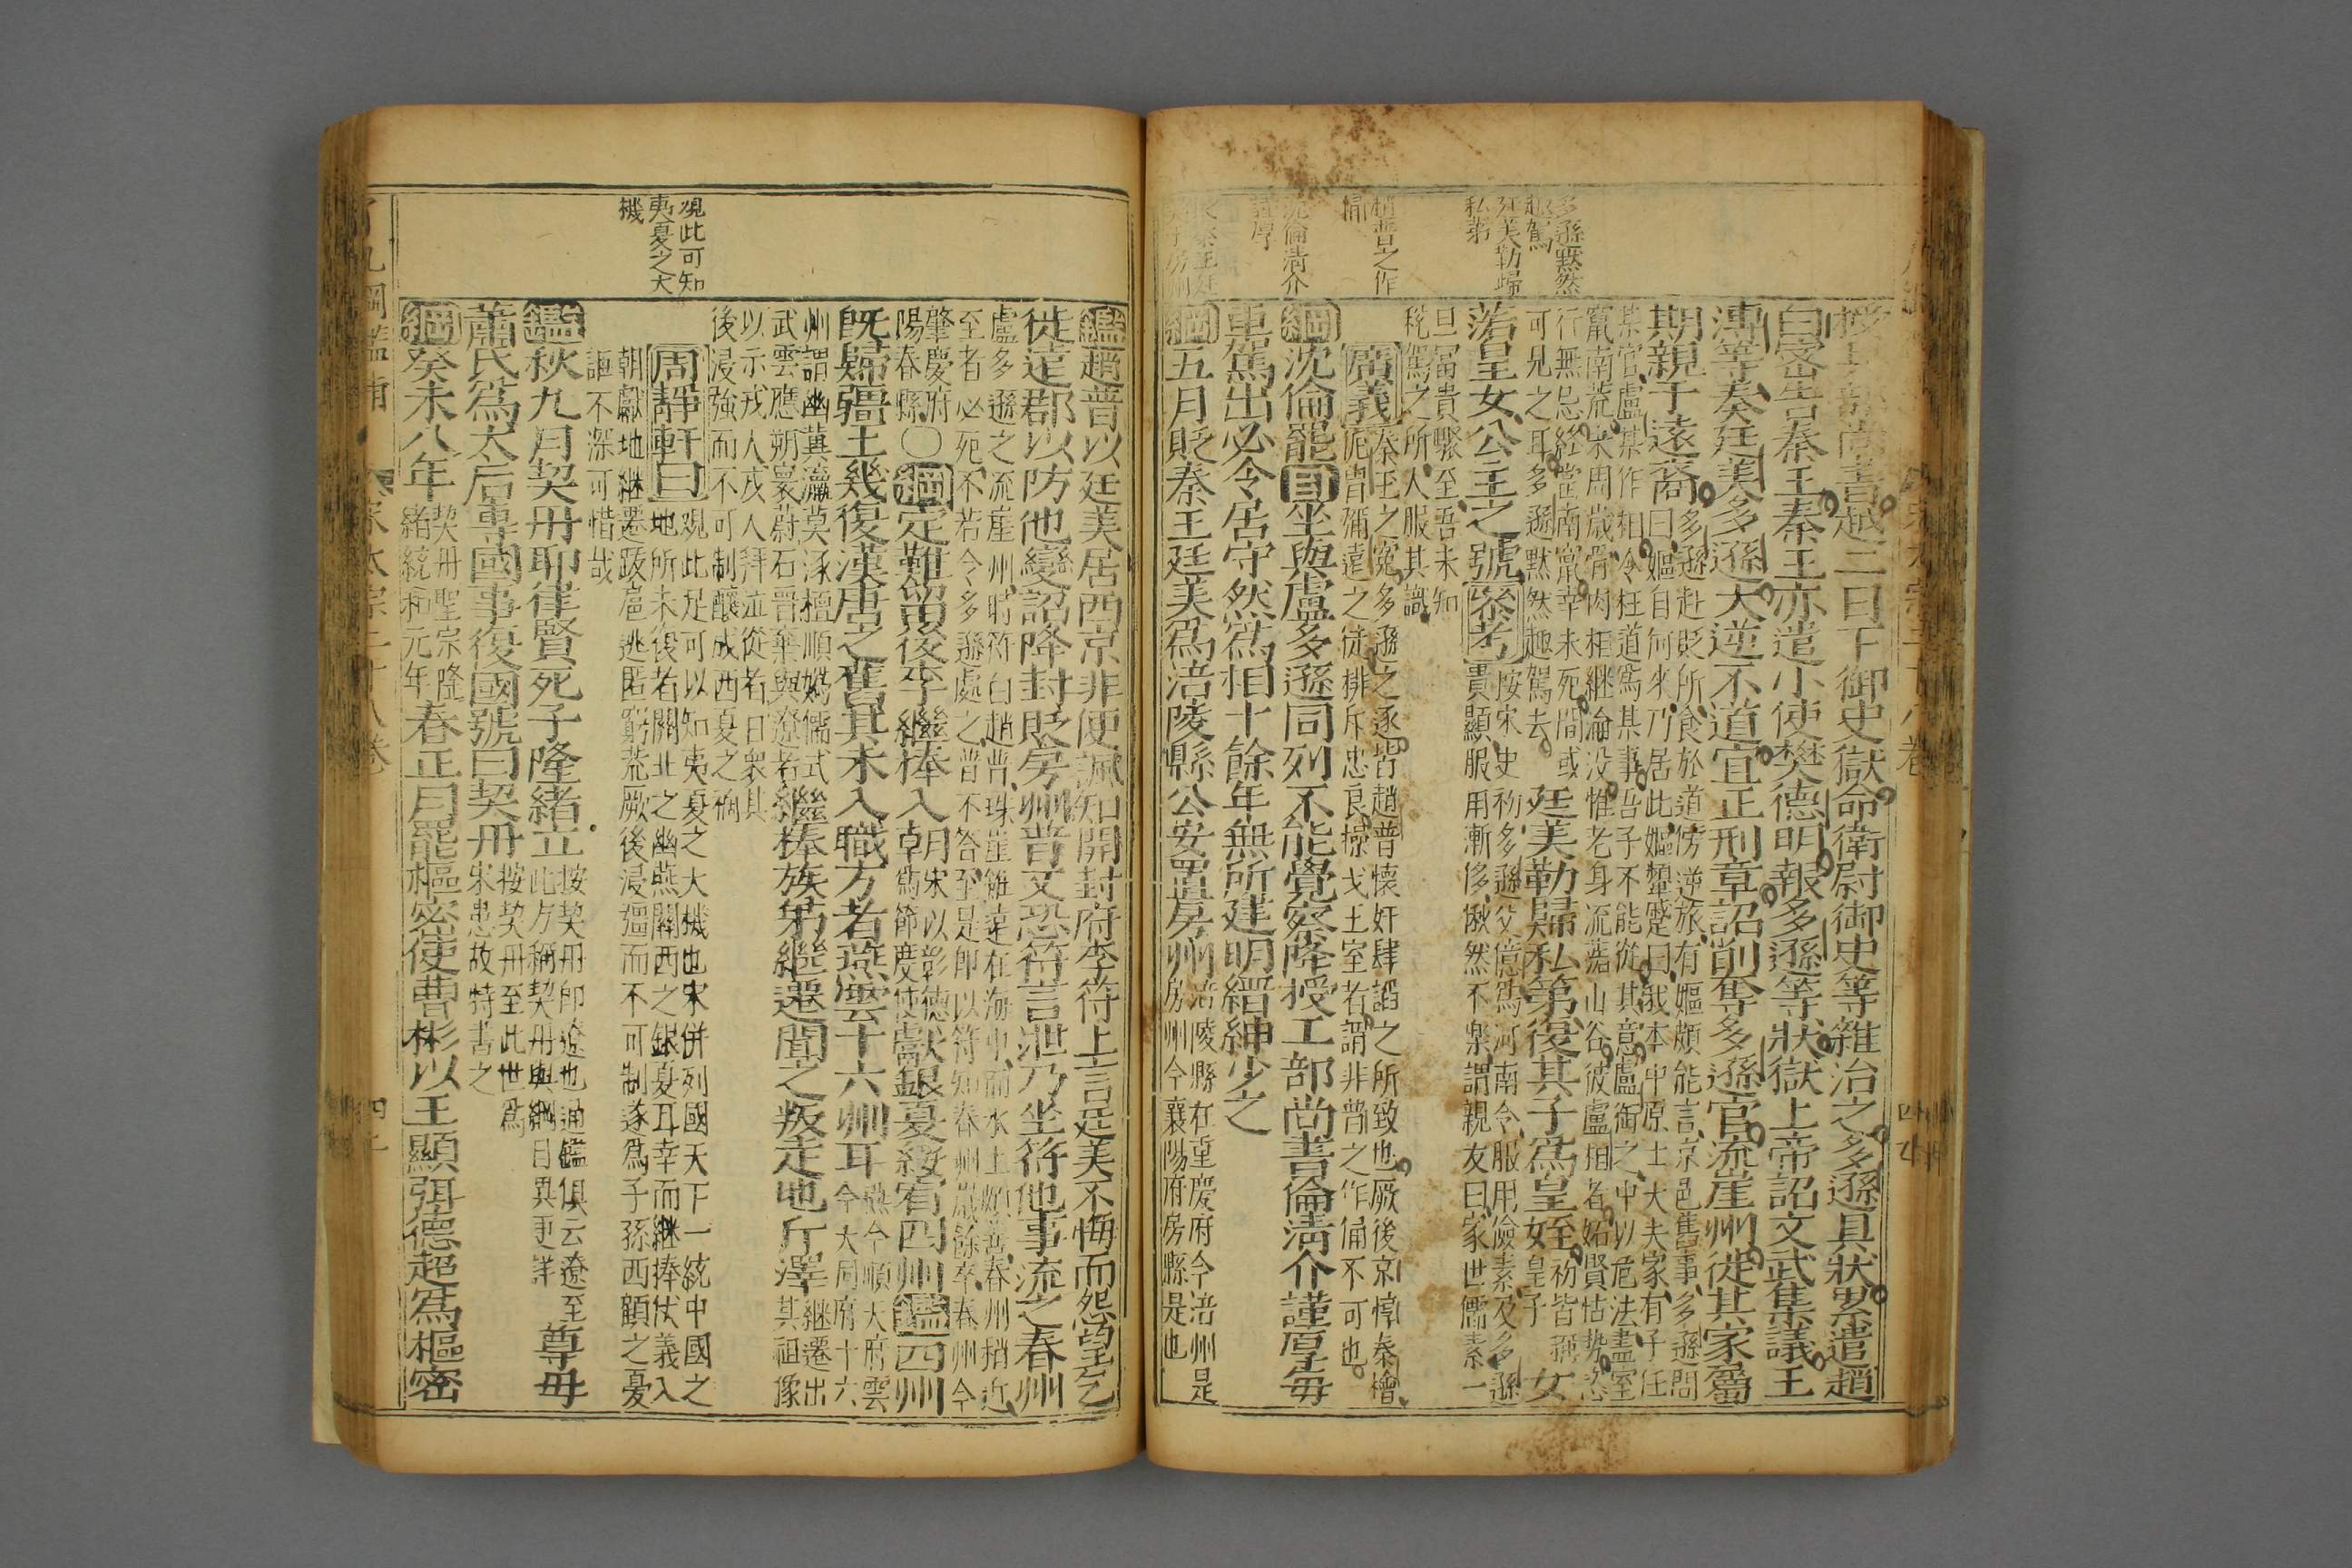 多遜默然
趣駕
廷美勒歸
私第
趙普之作
俑
沈倫清介
謹厚
授兵部尚書越三日下御史獄命衛尉御史等雜治之多遜具狀累遣趙
白密告秦王秦王亦遣小使樊德明報多遜等狀獄上帝詔文武集議王
溥等奏廷美多遜大逆不道宜正刑章詔削奪多遜官流崖州從其家屬
期親于遠裔
多遜赴貶所食於道傍逆旅有嫗頗能言京邑舊事多遜問
曰嫗自何來乃居此嫗顰蹙曰我本中原士大夫家有子任
某官盧某作相令枉道爲某事吾子不能從其意盧銜之中以危法盡室
竄南荒未周歲骨肉相繼淪沒惟老身流落山谷彼盧相者妬賢怙勢恣
行無忌終當南竄幸未死間或
可見之耳多遜默然趣駕去
廷美勒歸私第復其子爲皇姪
女皇子
初皆稱
女
落皇女公主之號參考
按宋史初多遜父億爲河南令服用儉素及多遜
貴顯服用漸侈愀然不樂謂親友曰家世儒素一
旦富貴驟至吾未知
稅駕之所人服其識
廣義
秦王之冤多遜之逐皆趙普懷奸肆謟之所致也厥後京惇秦檜
伲冑彌遠之徒排斥忠良操戈王室者謂非普之作俑不可也
綱沈倫罷目坐與盧多遜同列不能覺察降授工部尚書倫清介謹厚每
車駕出必令居守然爲相十餘年無所建明縉紳少之
綱五月貶秦王廷美爲涪陵縣公安置房州
涪陵縣在重慶府今涪州是
房州今襄陽府房縣是也
觀此可知
夷夏之大
機
鑑趙普以廷美居西京非便諷知開封府李符上言廷美不悔而怨望乞
徙遠郡以防他變詔降封貶房州普又恐符言泄乃坐符他事流之春州
盧多遜之流崖州時符白趙普珠崖雖遠在海中而水土頗善春州稍近
至者必死不若令多遜處之普不答至是即以符知春州歲餘卒春州今
肇慶府
陽春縣
〇綱定難留後李繼捧入朝
月宋以彰德
爲節度使
獻銀夏綏宥四州鑑四州
既歸疆土幾復漢唐之舊其未入職方者燕雲十六州耳
燕今順天府雲
今大同府十六
州謂幽冀瀛莫涿檀順嬀儒武
武雲應朔寰蔚石晉棄與遼者
繼捧族弟繼遷聞之叛走地斤澤
繼遷出
其祖像
以示戎人戎人拜泣從者日衆其
後浸強而不可制釀成西夏之禍
周靜軒曰
觀此足可以知夷夏之大機也宋併列國天下一統中國之
地所未復者關北之幽燕關西之銀夏耳幸而繼捧伏義入
朝獻地繼遷跋扈逃匿窮荒厥後浸疆而不可制遂爲子孫西顧之憂
謳不深可惜哉
鑑秋九月契丹耶律賢死子隆緒立
按契丹即遼也通鑑俱云遼至
此方稱契丹與綱目異更詳
尊母
蕭氏爲太后專國事復國號曰契丹
按契丹至此世爲
宋患故特書之
綱癸未八年
契丹聖宗隆
緒統和元年
春正月罷樞密使曹彬以王顯弭德超爲樞密